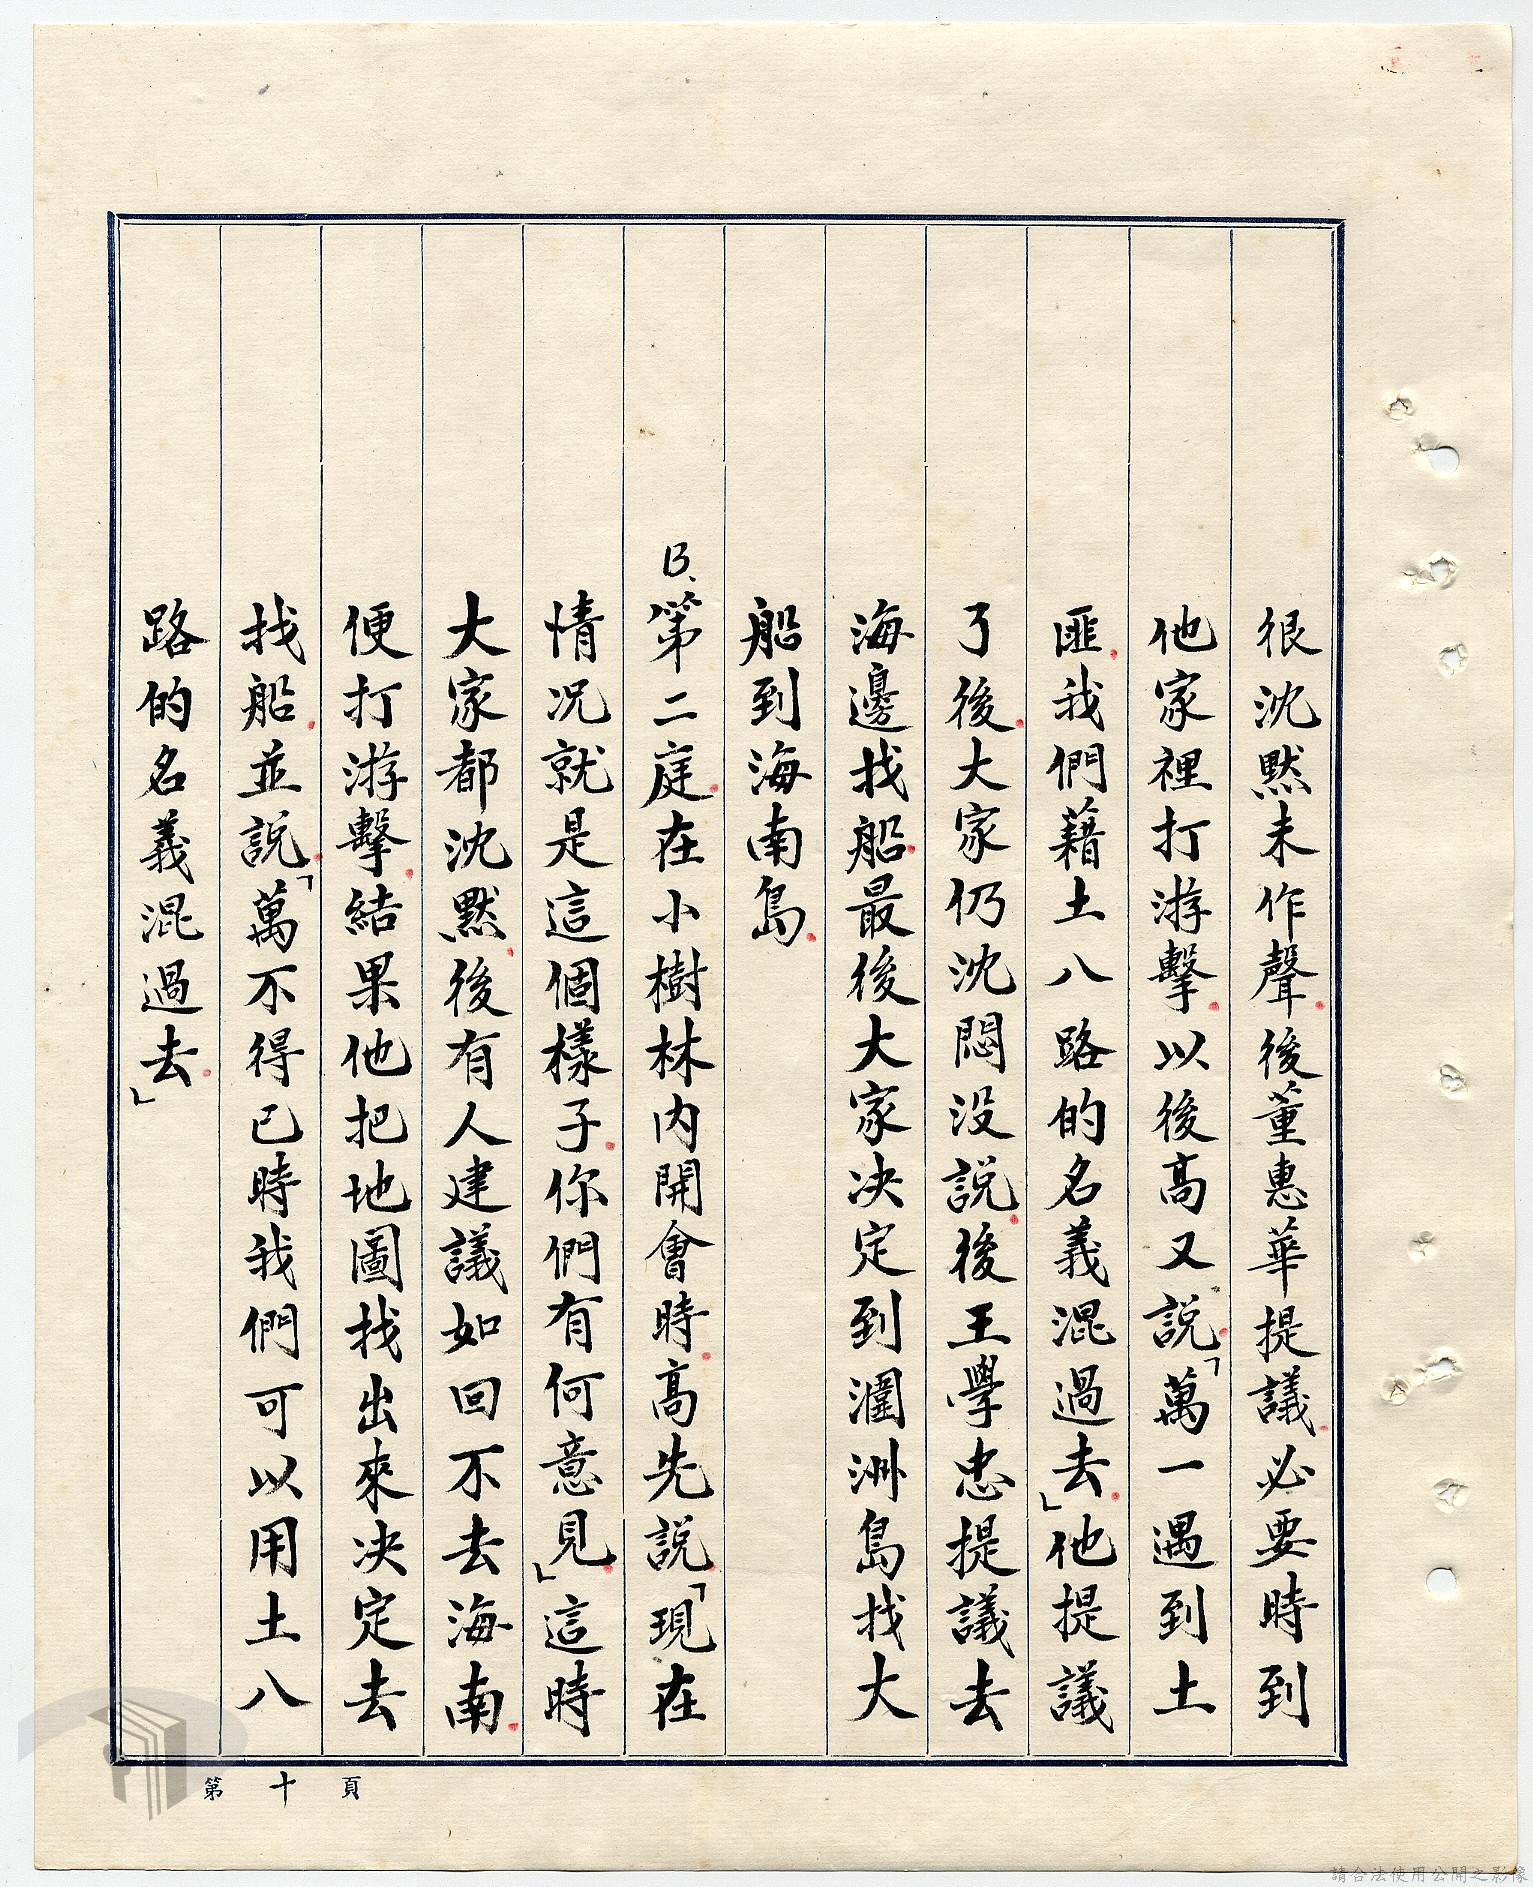 很沈默未作聲後董惠華提議必要時到
他家裡打游擊以後高又說「萬一遇到土
匪我們藉土八路的名義混過去」他提議
了後大家仍沈悶没說後王學忠提議去
海邊找船最後大家决定到潿洲島找大
船到海南島
B、第二庭在小樹林内開會時高先說「現在
情况就是這個樣子你們有何意見」這時
大家都沈默後有人建議如回不去海南
便打游擊結果他把地圖找出來决定去
找船並說「萬不得已時我們可以用土八
路的名義混過去」
第十頁
請合法使用公開之影像